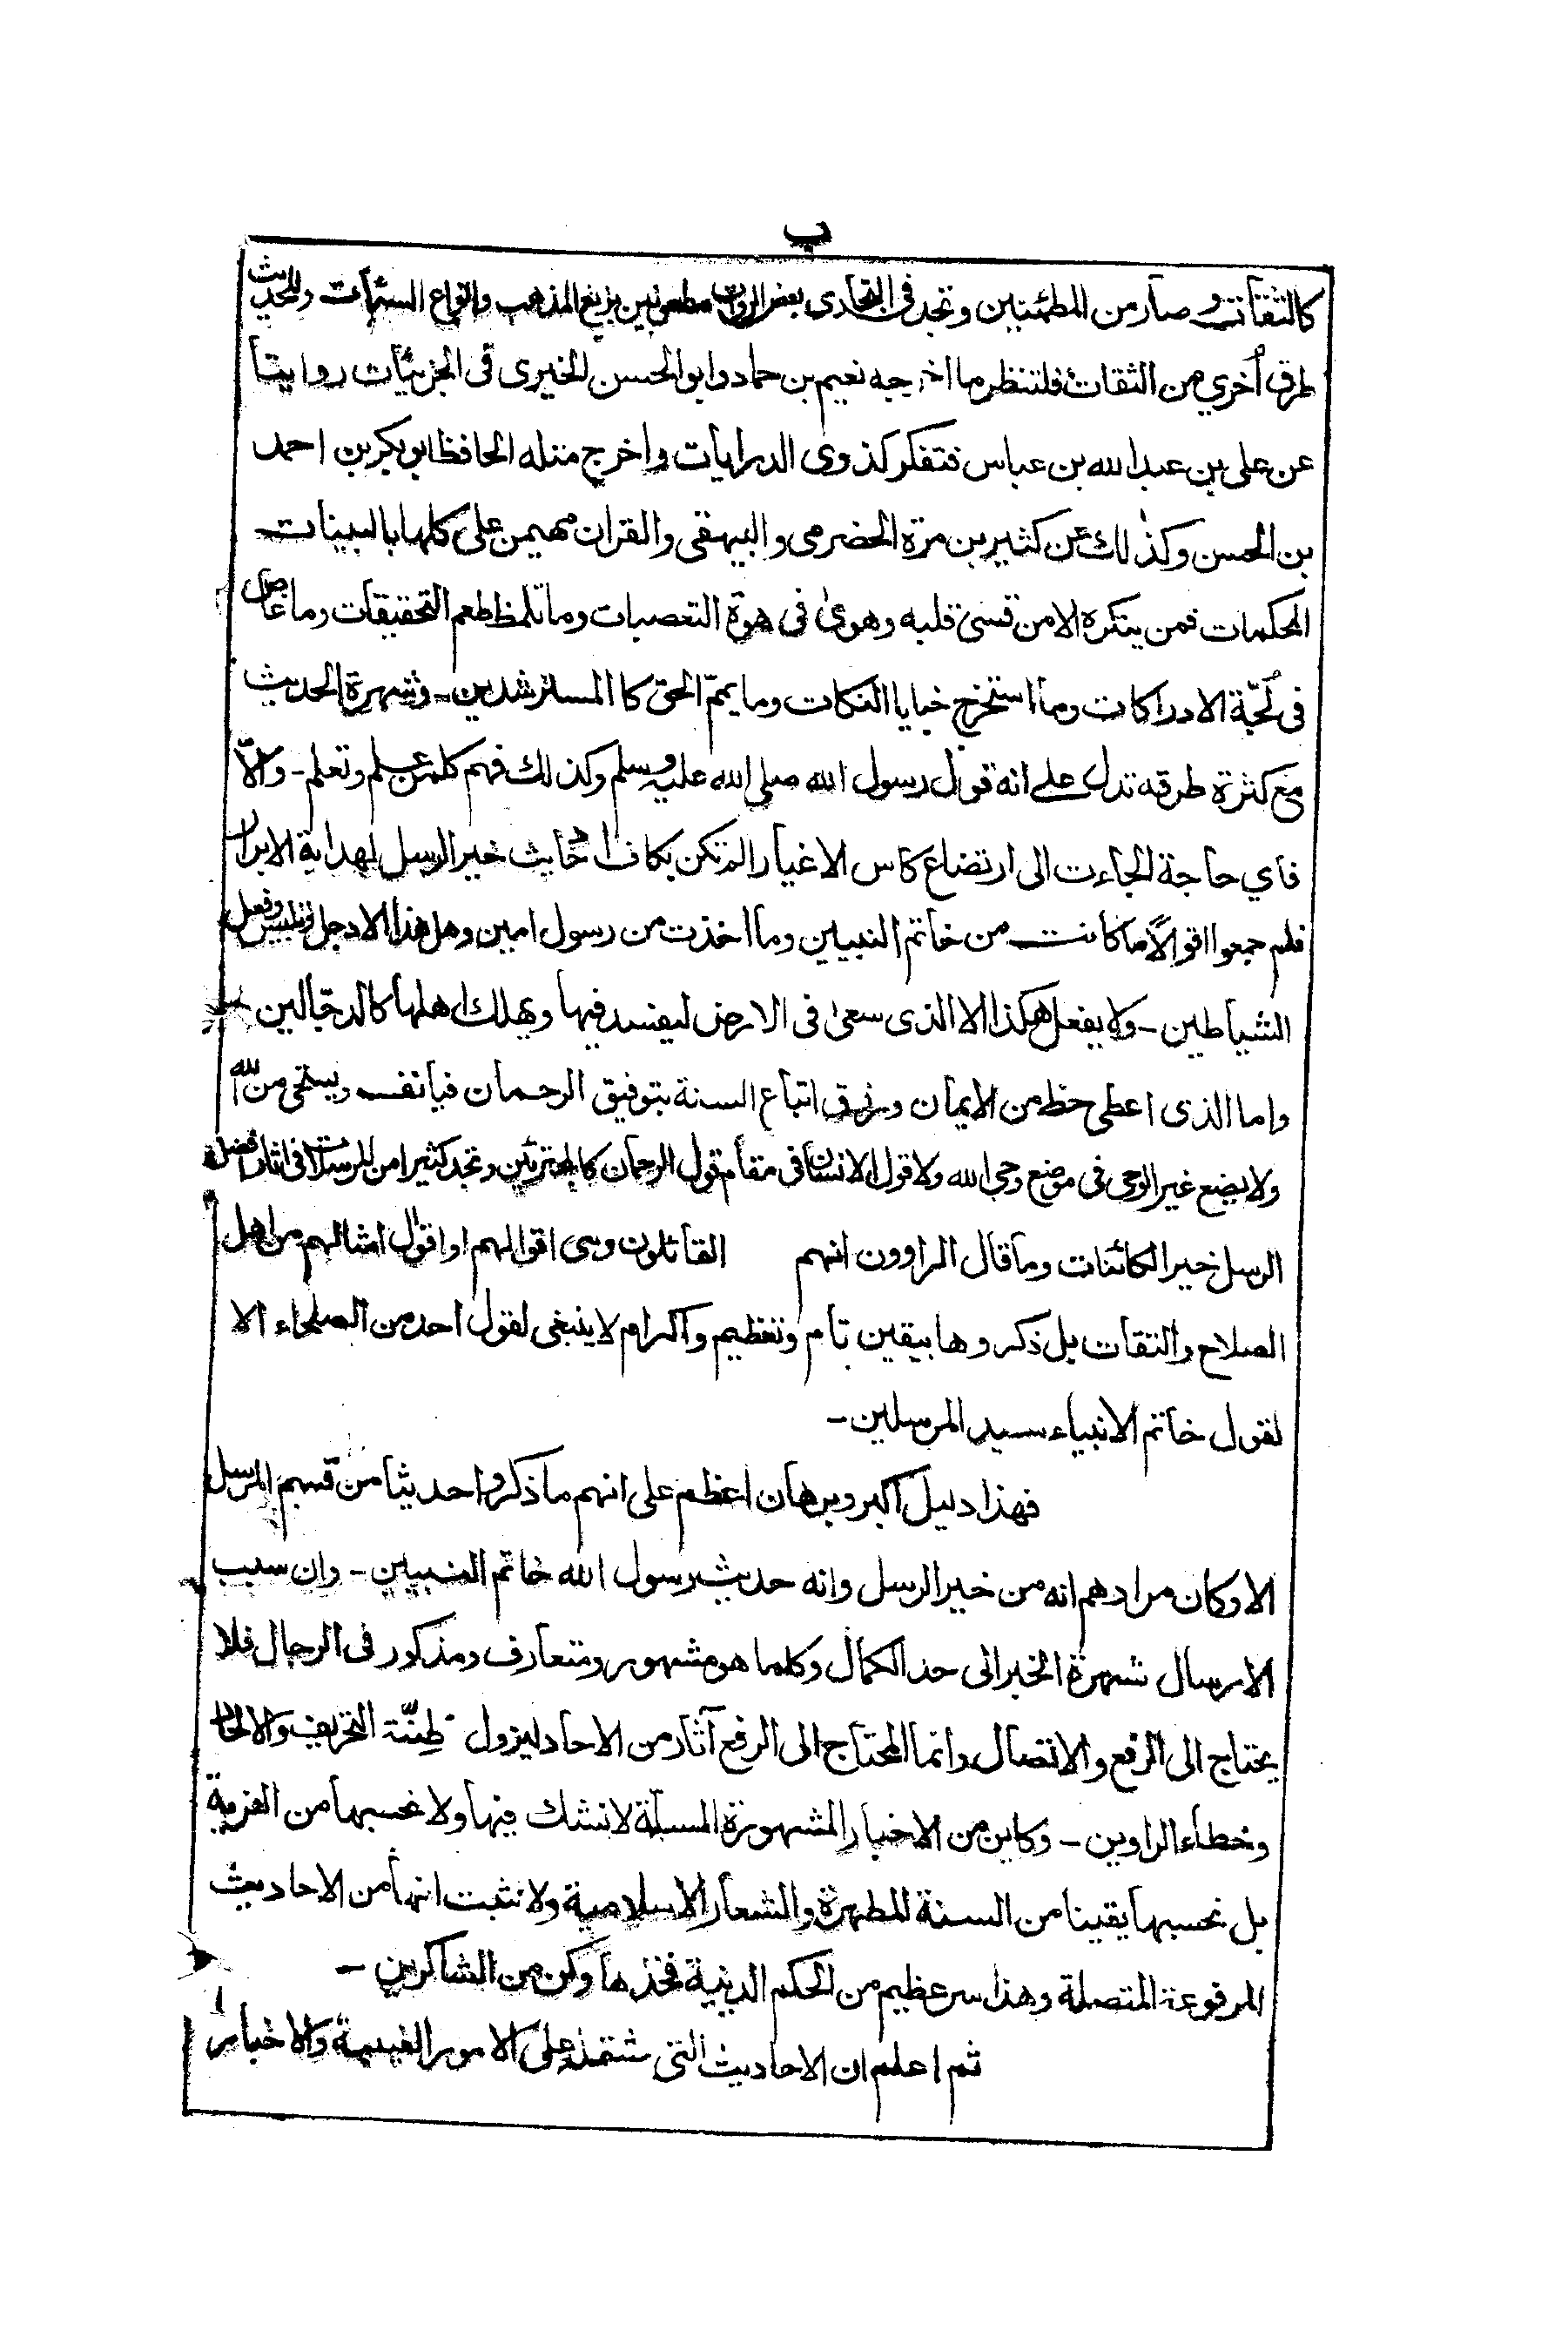 ب
كالثقات وصار من المطمئنين وتجد في البخاري بعض الروات مطعونين بزيغ المذهب وانواع السئيات وللحديث
طرق أخري من الثقات فلتنظر ما اخرجه نعيم بن حماد وابو الحسن الخيرى فى الجزئيات روايتا
عن على بن عبد الله بن عباس فتفكر كذوى الدرايات واخرج مثله الحافظ ابو بكر بن احمد
بن الحسن وكذٰلك عن كثير بن مرة الحضرمى والبيهقى والقران مهيمن على كلها بالبينات
المحكمات فمن ينكره الا من قسىٰ قلبه وهوىٰ فى هوّة التعصبات وما تلمظ طعم التحقيقات وما غاص
فى لُجّة الادراكات وما استخرج خبايا النكات وما يمّم الحق كا المسترشدين - وشهرة الحديث
مع كثرة طرقه تدل على انه قول رسول الله صلى الله عليه وسلم وكذلك فهم كلمن علم وتعلم - والّا
فاي حاجة الجاءت الى ارتضاع كاس الاغيار الم تكن بكاف احاديث خير الرسل لهداية الابرار
فلم جمعوا اقوالًا ما كانت من خاتم النبيين وما اخذت من رسول امين وهل هذا الا دجل وتلبيس وفعل
الشياطين - ولا يفعل هكذا الا الذى سعىٰ فى الارض ليفسد فيها ويهلك اهلها كالدجّالين -
واما الذى اعطى حظ من الايمان ورزق اتباع السنة بتوفيق الرحمان فيانف ويستحى من الله
ولا يضع غير الوحى فى موضع وحى الله ولا قول الانسان فى مقام قول الرحمان كالمجترئين وتجد كثيرا من المرسلات فى اثار افضل
الرسل خير الكائنات وما قال الراوون انهم القائلون وهى اقوالهم او اقوال امثالهم من اهل
الصلاح والتقات بل ذكروها بيقين تام وتعظيم واكرام لا ينبغى لقول احد من الصلحاء الا
لقول خاتم الانبياء سيد المرسلين -
فهذا دليل اكبر وبرهان اعظم على انهم ما ذكروا حديثا من قسم المرسل
الا وكان مرادهم انه من خير الرسل وانه حديث رسول الله خاتم النبيين - وان سبب
الارسال شهرة الخبر الى حد الكمال وكلما هو مشهور ومتعارف ومذكور فى الرجال فلا
يحتاج الى الرفع والاتصال وانما المحتاج الى الرفع آثار من الاحاد ليزول ظِنّة التحريف والالحاد
وخطاء الراوين - وكاين من الاخبار المشهورة المسلّة لا نشك فيها ولا نحسبها من الفرية
بل نحسبها يقينا من السنة المطهرة والشعار الاسلامية ولا نثبت انها من الاحاديث
المرفوعة المتصلة وهذا سر عظيم من الحكم الدينية فخذها وكن من الشاكرين -
ثم اعلم ان الاحاديث التى مشتملة على الامور الغيبية والاخبار